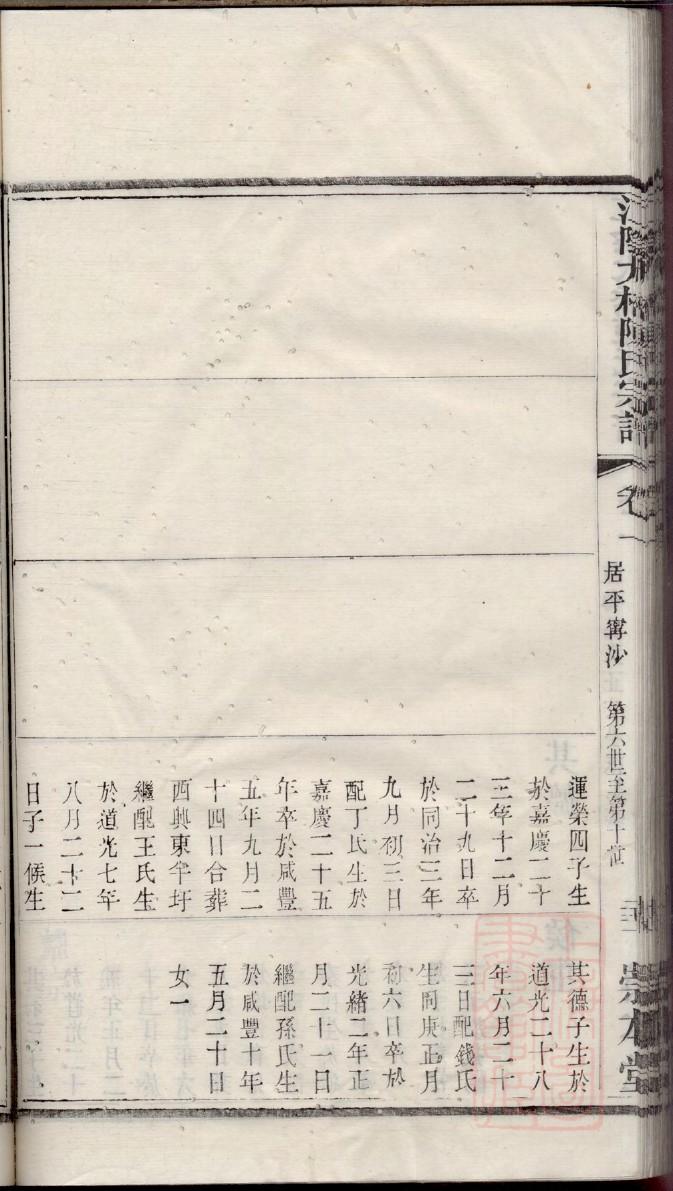 江陰九林陳氏宗譜
卷一
居平寗沙
第六世至第十世
崇本堂
運榮四子生
於嘉慶二十
三年十二月
二十九日卒
於同治三年
九月初三日
配丁氏生於
嘉慶二十五
年卒於咸豐
五年九月二
十四日合葬
西興東牮圩
繼配王氏生
於道光七年
八月二十二
日子一候生
其德子生於
道光二十八
年六月二十
三日配錢氏
生同庚正月
初六日卒於
光緒二年正
月二十一日
繼配孫氏生
於咸豐十年
五月二十日
女一